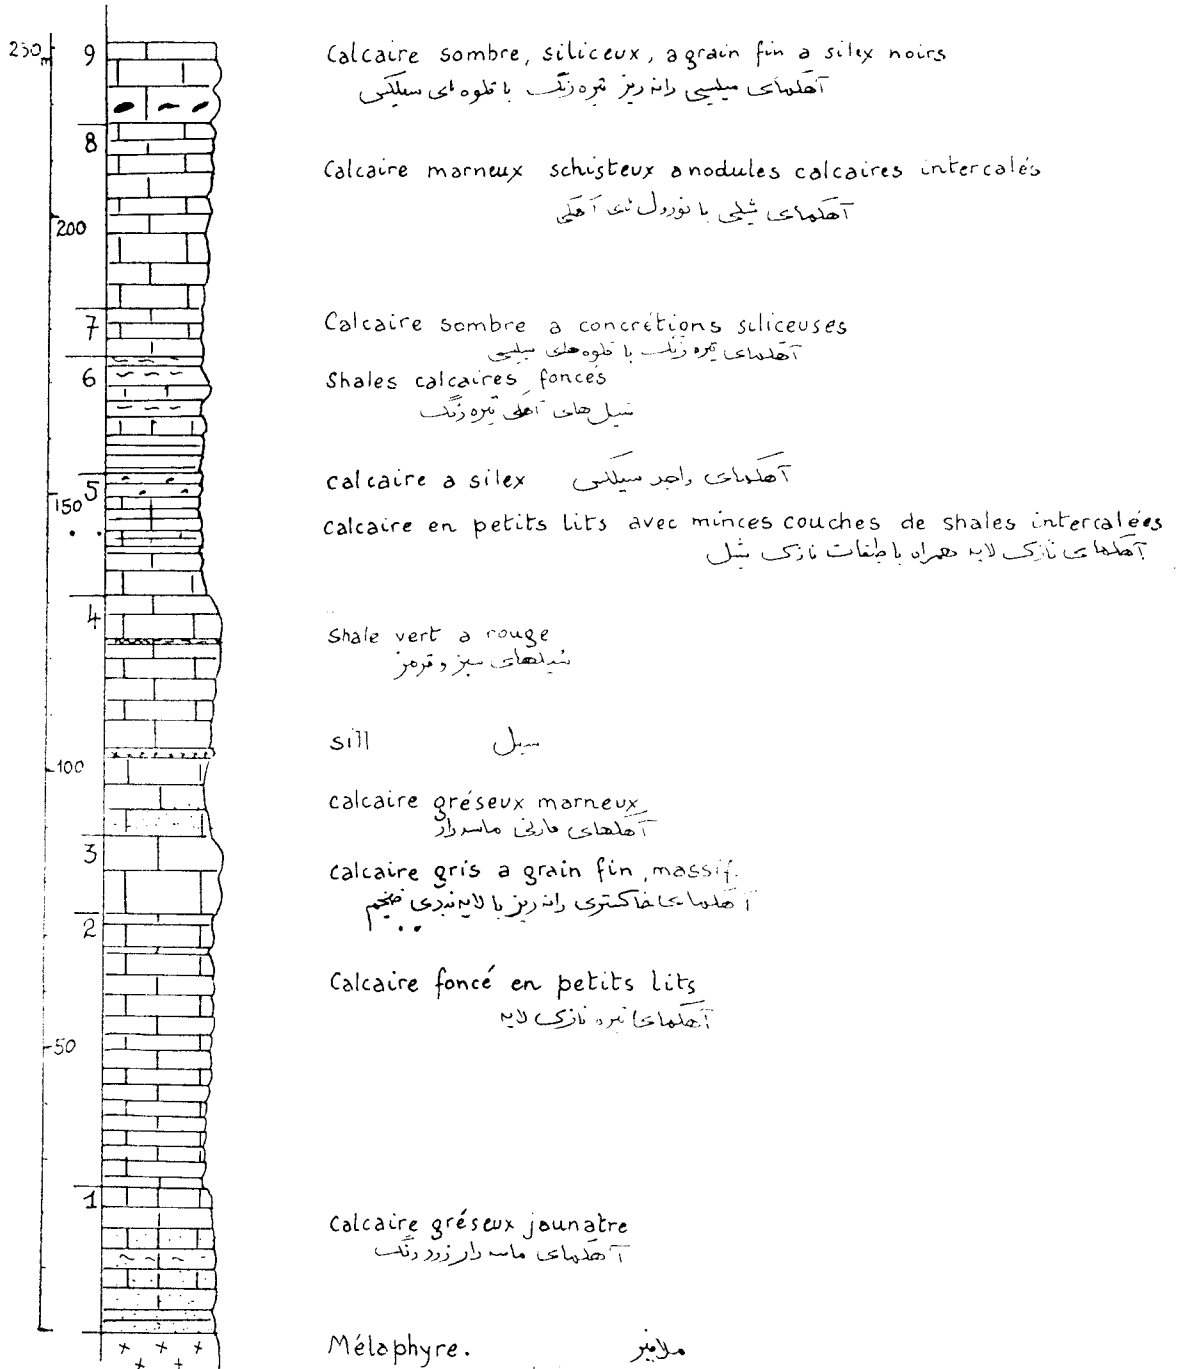 230 m
9
Calcaire sombre, siliceux, a grain fin a silex noirs
آهکهای سیلیسی دانه ریز تیره رنگ با قلوه های سیلکسی
8
Calcaire marneux schisteux a nodules calcaires intercalés
آهکهای شیلی با نودول های آهکی
200
7
Calcaire sombre a concrétions siliceuses
آهکهای تیره رنگ با قلوه های سیلیسی
6
Shales calcaires foncés
شیل های آهکی تیره رنگ
5
calcaire a silex آهکهای واجد سیلکس
150
calcaire en petits lits avec minces couches de shales intercalées
آهکهای نازک لایه همراه با طبقات نازک شیل
4
Shale vert a rouge
شیلهای سبز و قرمز
sill سیل
100
calcaire gréseux marneux
آهکهای مارنی ماسه دار
3
calcaire gris a grain fin, massif.
آهکهای خاکستری دانه ریز با لایه بندی ضخیم
2
Calcaire foncé en petits lits
آهکهای تیره نازک لایه
50
1
Calcaire gréseux jaunatre
آهکهای ماسه دار زرد رنگ
Mélaphyre. ملافیر